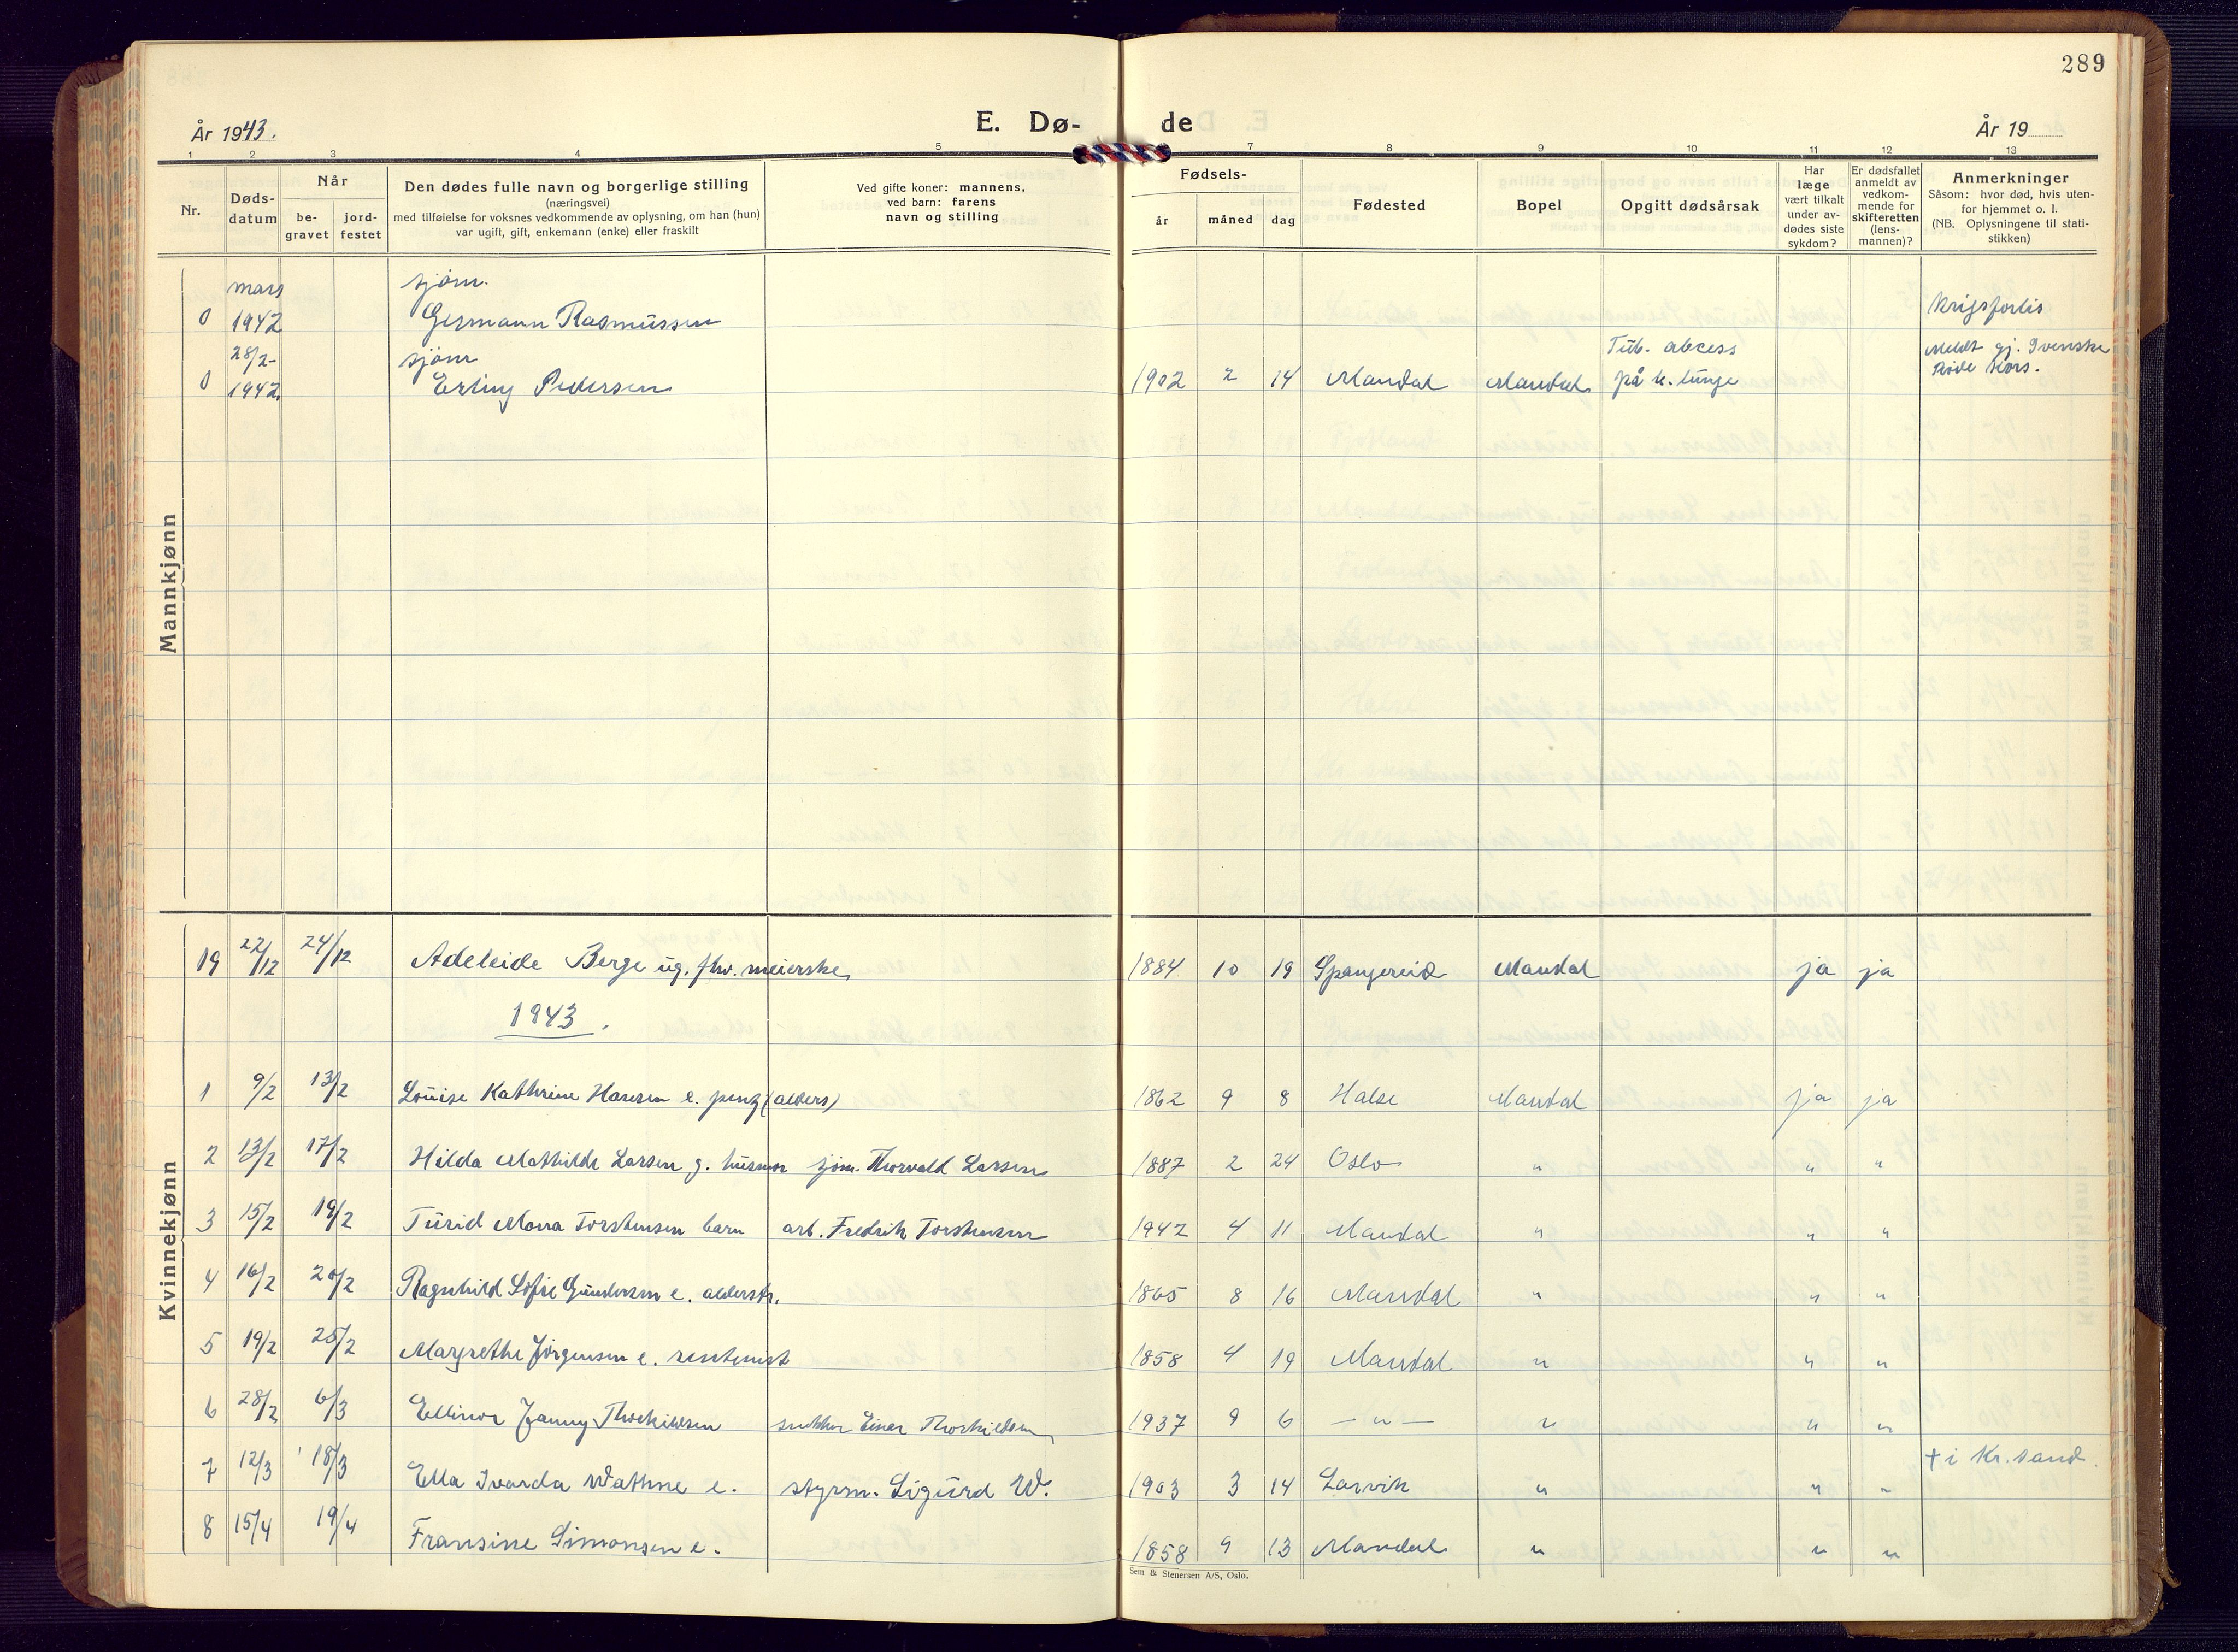 289
År 1943.
E. Dø-
de
År 19
1 2 3 4 5 7 8 9 10 11 12 13
Nr.
Døds-
datum
Når
be-
gravet
jord-
festet
Den dødes fulle navn og borgerlige stilling
(næringsvei)
med tilføielse for voksnes vedkommende av oplysning, om han (hun)
var ugift, gift, enkemann (enke) eller fraskilt
Ved gifte koner: mannens,
ved barn: farens
navn og stilling
Fødsels-
år måned dag
Fødested
Bopel
Opgitt dødsårsak
Har
læge
vært tilkalt
under av-
dødes siste
sykdom?
Er dødsfallet
anmeldt av
vedkom-
mende for
skifteretten
(lens-
mannen)?
Anmerkninger
Såsom: hvor død, hvis uten-
for hjemmet o. l.
(NB. Oplysningene til stati-
stikken)
Mannkjønn
mars sjøm.
0 1942 Germann Rasmussen Krigsforlis
28/2- sjøm Tub. abcess Meldt gj. Svenske
0 1942. Erling Pedersen 1902 2 14 Mandal Mandal på h. lunge Røde Kors.
Kvinnekjønn
19 22/12 24/12 Adeleide Berge ug. fhv. meierske 1884 10 19 Spangereid Mandal ja ja
1943.
1 9/2 13/2 Louise Kathrine Hansen e. (alders) 1862 9 8 Halse Mandal ja ja
2 13/2 17/2 Hilda Mathilde Larsen g. husmor sjøm. Thorvald Larsen 1887 2 24 Oslo " " "
3 15/2 19/2 Turid Mona Torstensen barn arb. Fredrik Torstensen 1942 4 11 Mandal " " "
4 16/2 20/2 Ragnhild Sofie Gundersen e. alderstr. 1865 8 16 Mandal " " "
5 19/2 25/2 Margrethe Jørgensen e. rentenist 1858 4 19 Mandal " " "
6 28/2 6/3 Ellinor Janny Thorkildsen snekker Einar Thorkildsen 1937 9 6 — " — " " "
7 12/3 18/3 Ella Ivarda Wathne e. styrm. Sigurd W. 1903 3 14 Larvik " " " † i Kr. sand.
8 15/4 19/4 Fransine Simonsen e. 1858 9 13 Mandal " " "
Sem & Stenersen A/S, Oslo.